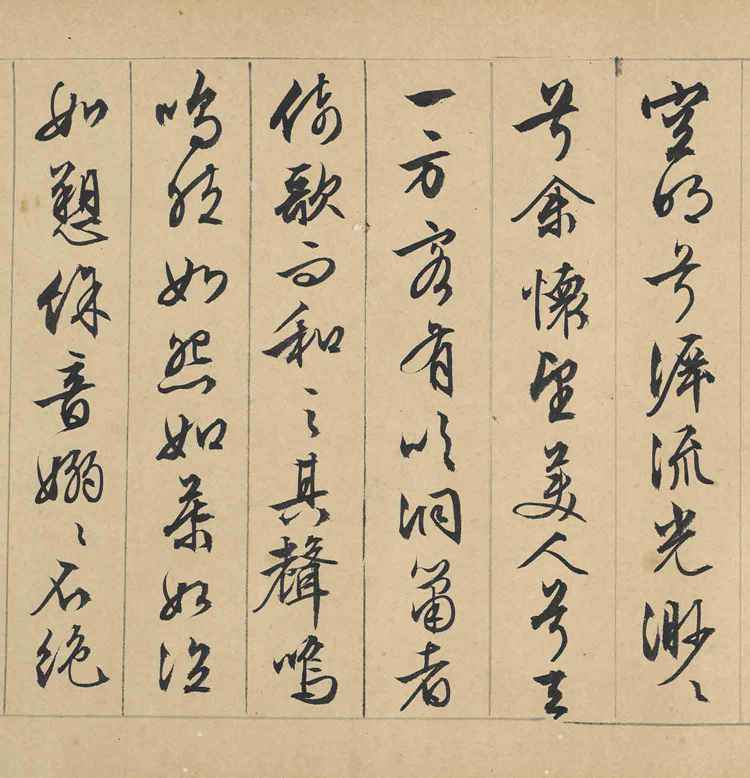 空明兮溯流光渺〻
兮余懷望美人兮天
一方客有吹洞簫者
倚歌而和之其聲嗚
嗚然如怨如慕如泣
如愬餘音嫋〻不絕